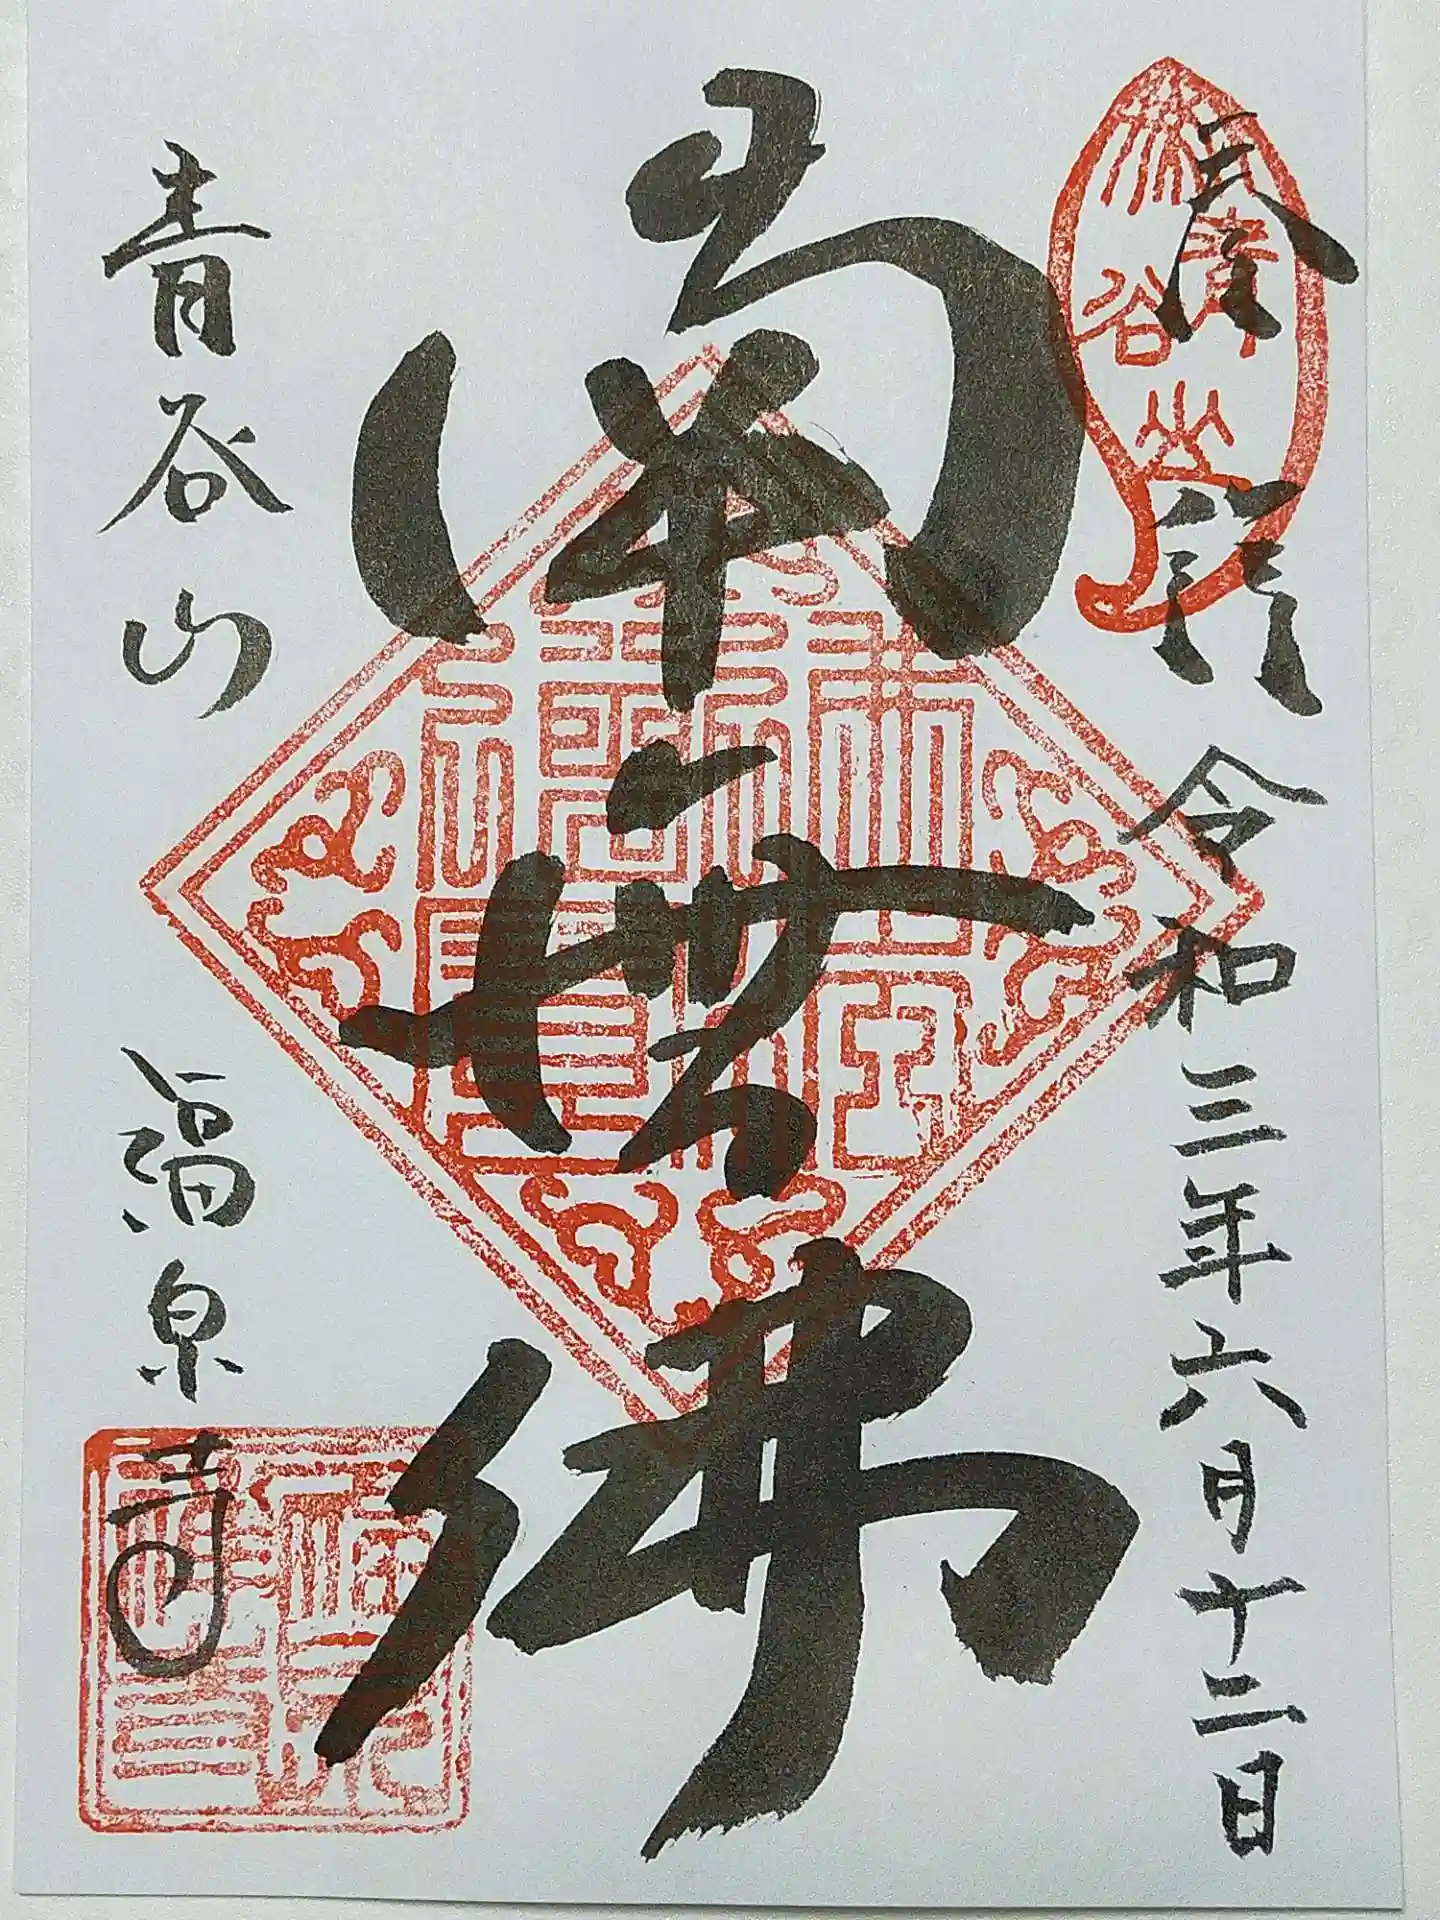 奉拝 令和三年六月十二日
青谷山
南無佛
青谷山 福泉寺